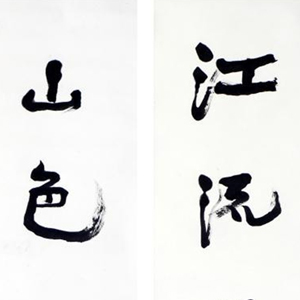 江流
山色